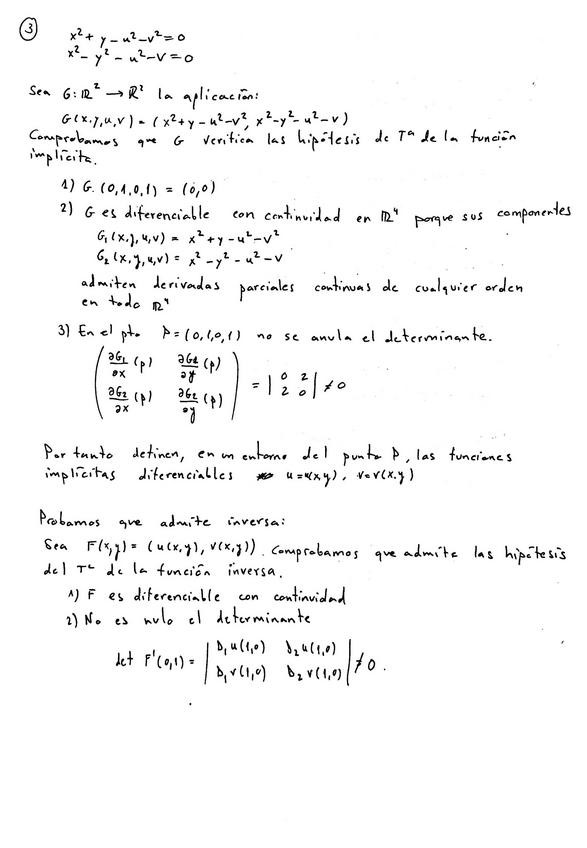 ③
x² + y - u² - v² = 0
x² - y² - u² - v = 0
Sea G: ℝ² → ℝ² la aplicación:
G(x,y,u,v) = (x²+y-u²-v², x²-y²-u²-v)
Comprobamos que G verifica las hipótesis de Tª de la función
implícita.
1) G.(0,1,0,1) = (0,0)
2) G es diferenciable con continuidad en ℝ⁴ porque sus componentes
G₁(x,y,u,v) = x² + y - u² - v²
G₂(x,y,u,v) = x² - y² - u² - v
admiten derivadas parciales continuas de cualquier orden
en todo ℝ⁴
3) En el pto P=(0,1,0,1) no se anula el determinante.
( ∂G₁/∂x (p) ∂G₁/∂y (p) )
( ∂G₂/∂x (p) ∂G₂/∂y (p) ) = | 0 2 ; 2 0 | ≠ 0
Por tanto definen, en un entorno del punto P, las funciones
implícitas diferenciables u=u(x,y), v=v(x,y)
Probamos que admite inversa:
Sea F(x,y) = (u(x,y), v(x,y)). Comprobamos que admite las hipótesis
del Tª de la función inversa.
1) F es diferenciable con continuidad
2) No es nulo el determinante
det F'(0,1) = | D₁u(1,0) D₂u(1,0) ; D₁v(1,0) D₂v(1,0) | ≠ 0.